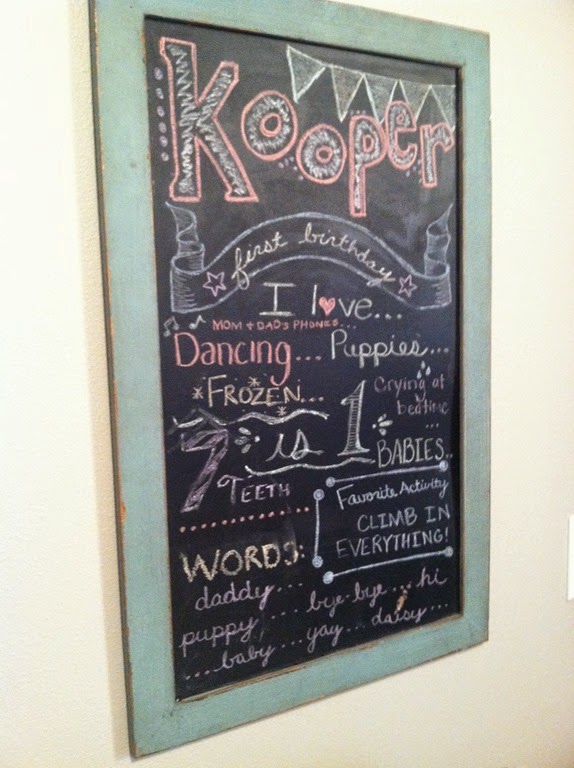 Kooper
first birthday
I love...
MOM + DAD'S PHONES...
Dancing... Puppies...
FROZEN... Crying at
bedtime
...
7 is 1 BABIES...
TEETH
Favorite Activity
CLIMB IN
EVERYTHING!
WORDS:
daddy...
puppy ... bye-bye... hi
....baby ... yay... daisy...